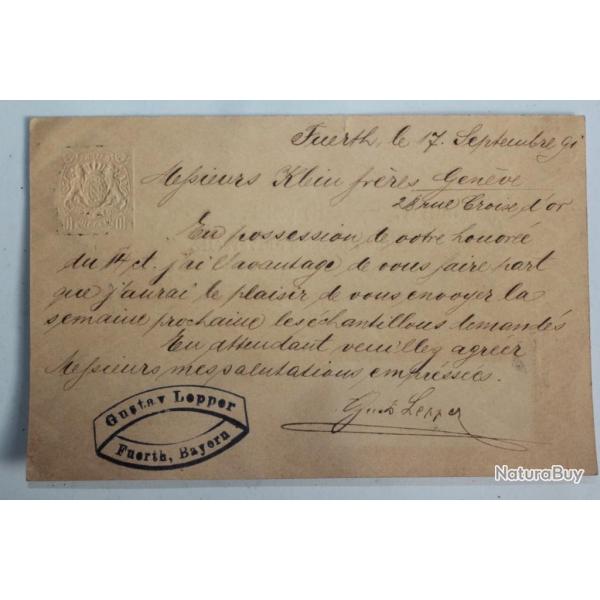 Fuerth, le 17. Septembre 91
Messieurs Klein frères Genève
28 rue Croise d'or
En possession de votre honorée
du 14 ct. j'ai l'avantage de vous faire part
que j'aurai le plaisir de vous envoyer la
semaine prochaine les échantillons demandés
En attendant veuillez agréer
Messieurs mes salutations empressées.
Gust. Lepper
Gustav Lepper
Fuerth, Bayern
NaturaBuy